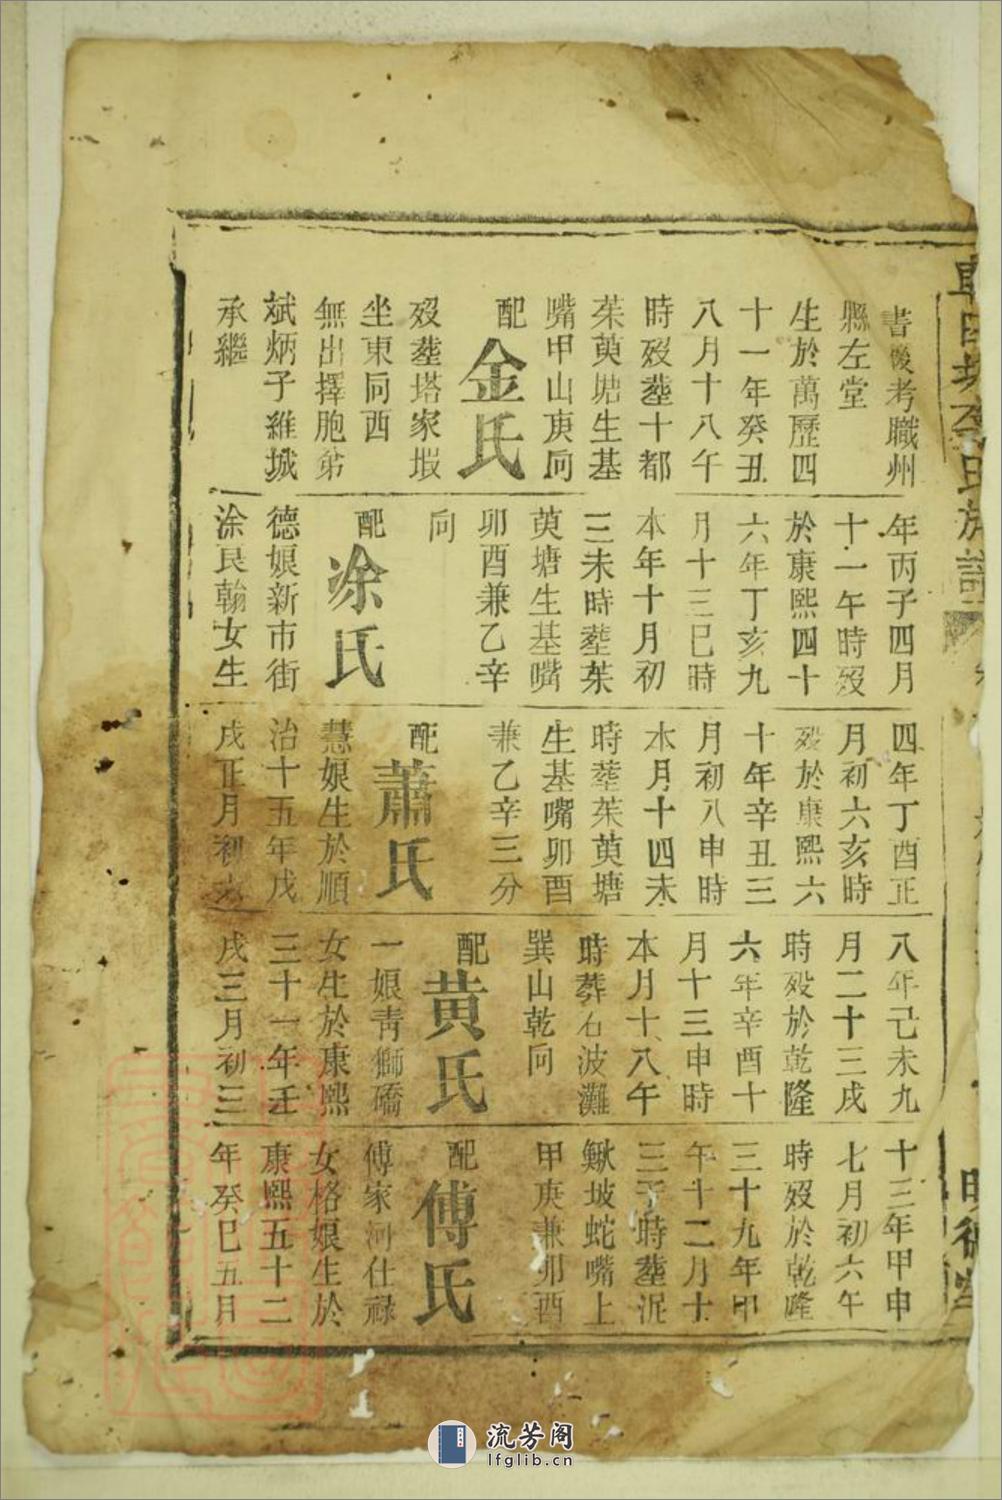 書後考職州
縣左堂
生於萬歷四
十一年癸丑
八月十八午
時歿塟十都
茱萸塘生基
嘴甲山庚向
配金氏
歿塟塔家塅
坐東向西
無出擇胞弟
斌炳子維城
承繼
年丙子四月
十一午時歿
於康熙四十
六年丁亥九
月十三巳時
本年十月初
三未時塟茱
萸塘生基嘴
卯酉兼乙辛
向
配涂氏
德娘新市街
涂民翰女生
四年丁酉正
月初六亥時
歿於康熙六
十年辛丑三
月初八申時
本月十四未
時塟茱萸塘
生基嘴卯酉
兼乙辛三分
配蕭氏
慧娘生於順
治十五年戊
戌正月初
八年己未九
月二十三戌
時歿於乾隆
六年辛酉十
月十三申時
本月十八午
時葬石波灘
巽山乾向
配黄氏
一娘靑獅礄
女生於康熙
三十一年壬
戌三月初三
十三年甲申
七月初六午
時歿於乾隆
三十九年甲
午十二月十
三子時塟泥
鰍坡蛇嘴上
甲庚兼卯酉
配傅氏
傅家河仕禄
女格娘生於
康熙五十二
年癸巳五月
氏族譜
流芳阁
lfglib.cn